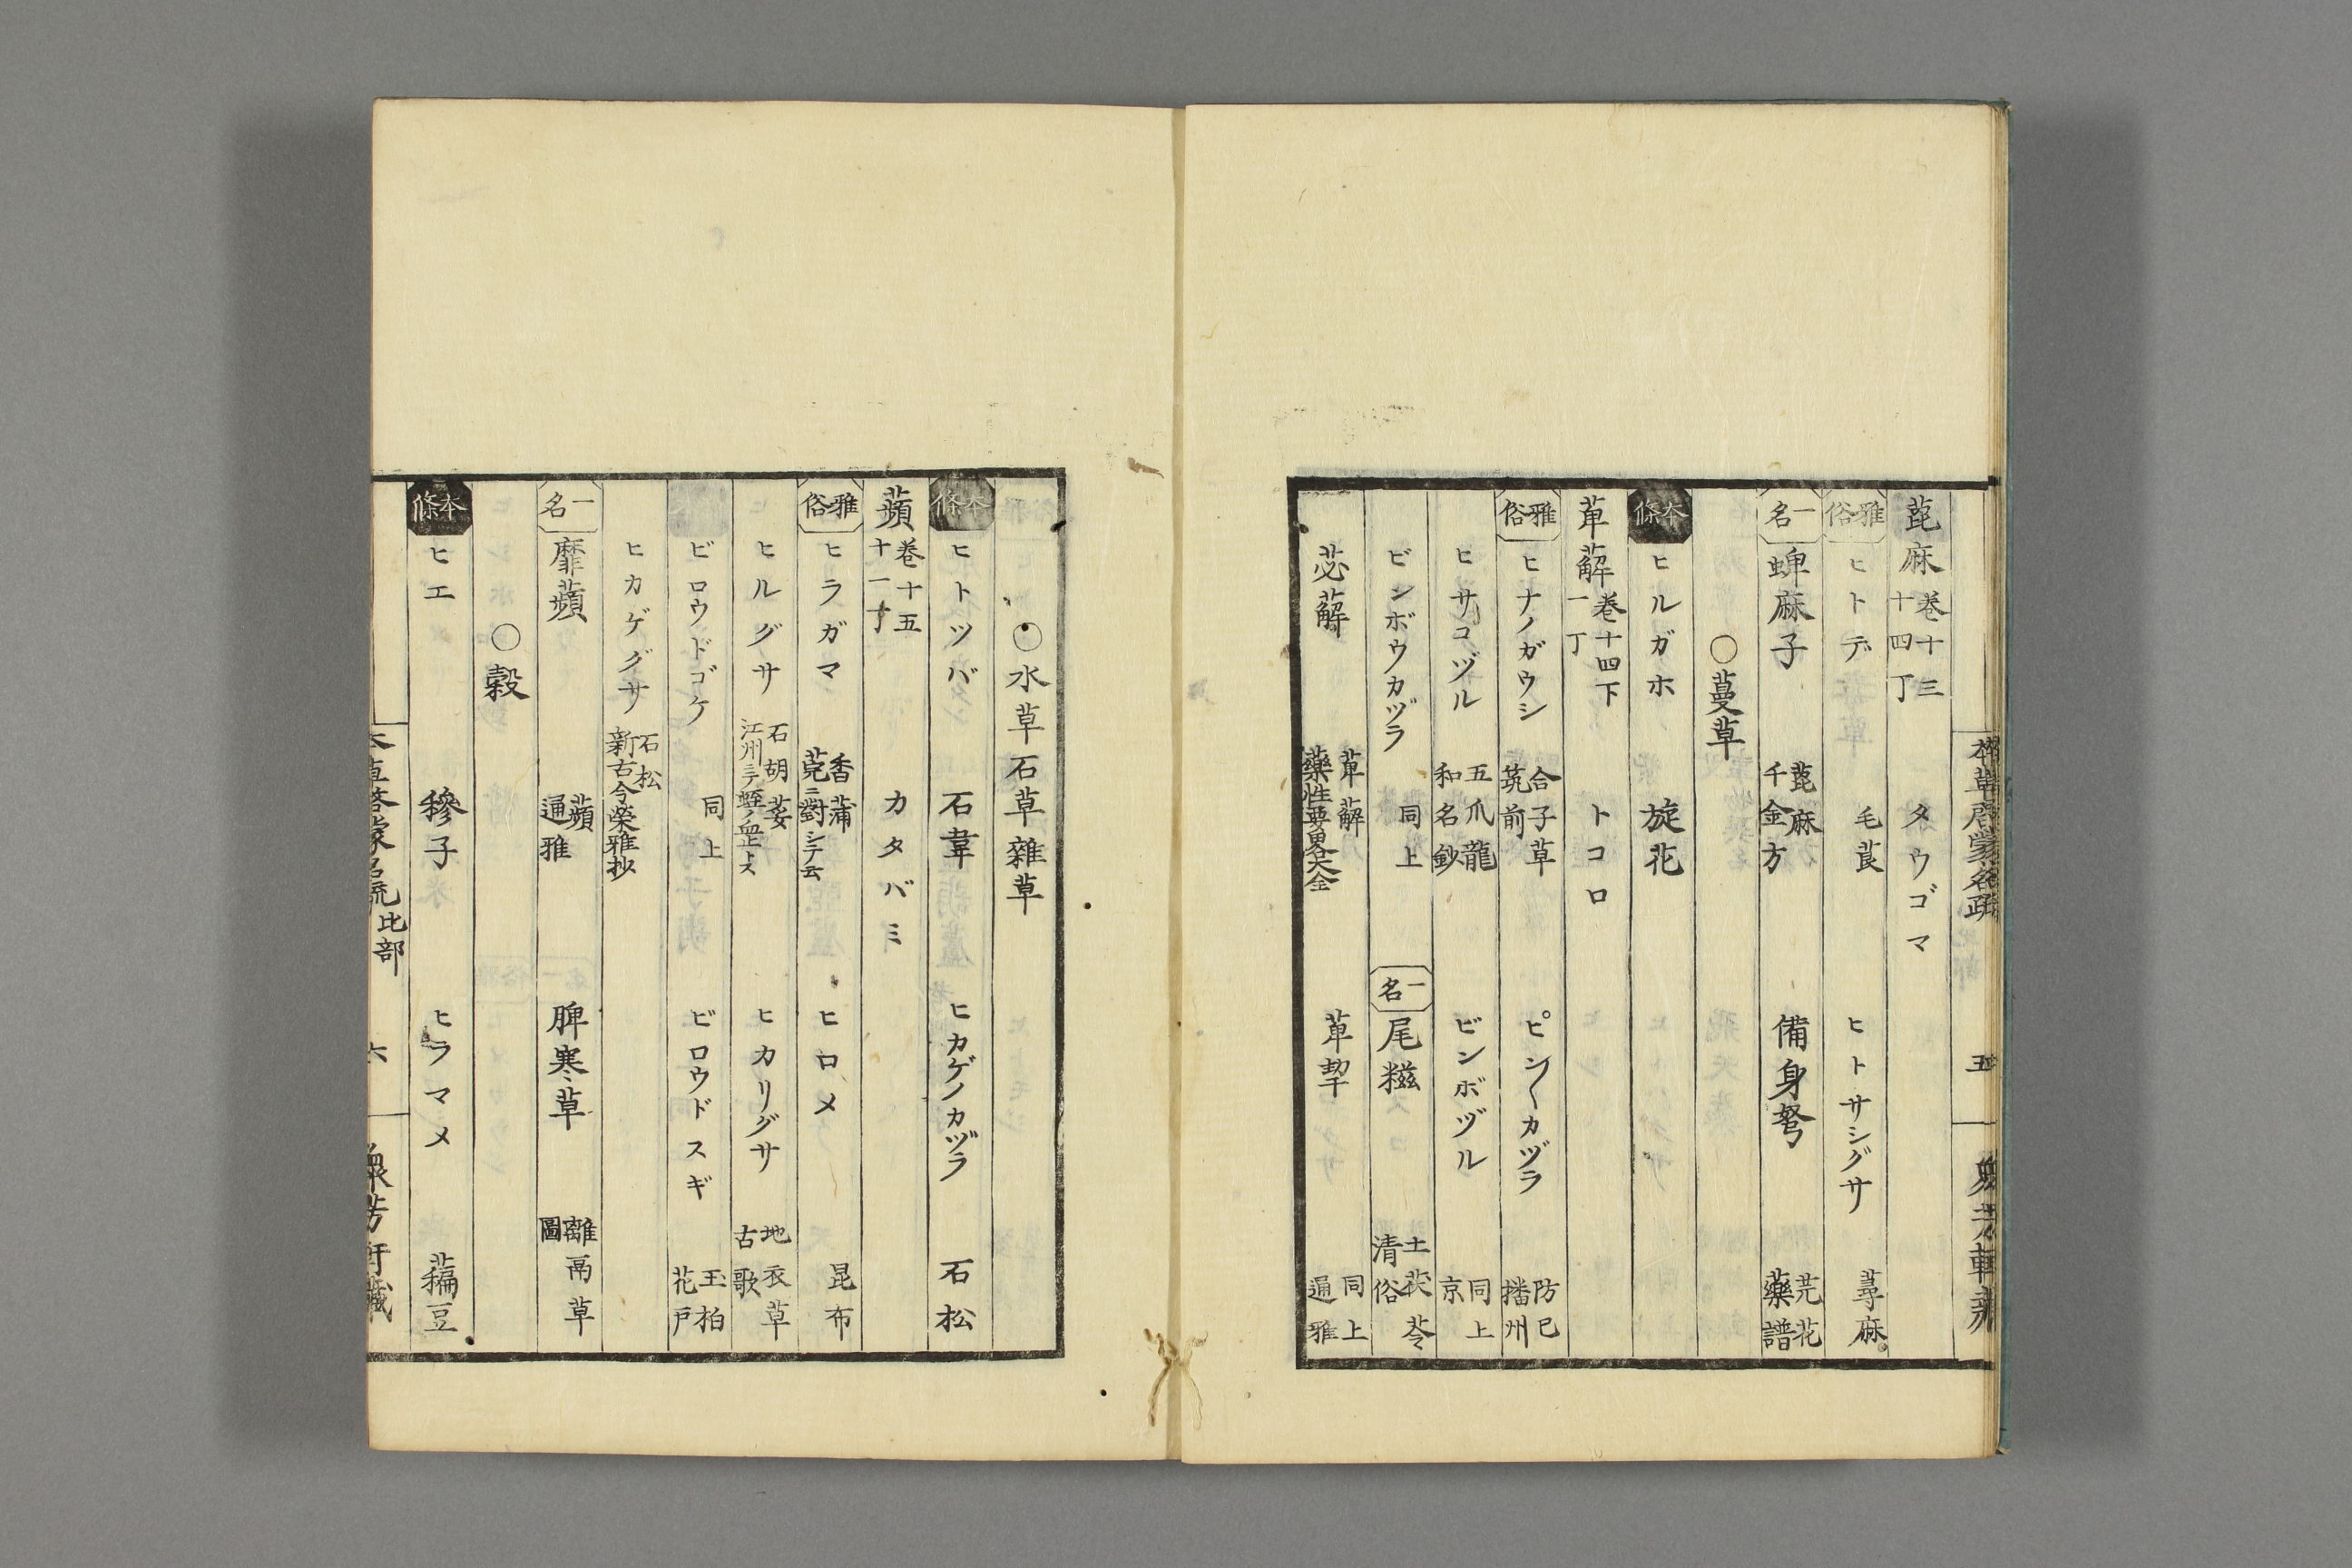 蓖麻 巻十三十四丁 タウゴマ
雅俗 ヒトデ 毛茛 ヒトサシグサ 蕁麻
一名 蜱麻子 蓖麻千金方 備身弩 芫花藥譜
〇蔓草
本條 ヒルガホ 旋花
萆薢 巻十四下一丁 トコロ
雅俗 ヒナノガウシ 合子草筑前 ピン〱カヅラ 防已播州
ヒサコヅル 五爪龍和名鈔 ビンボヅル 同上京
ビンボウカヅラ 同上 一名 尾糍 土茯苓清俗
苾薢 萆薢藥性要畧大全 萆挈 同上通雅
〇水草石草雜草
本條 ヒトツバ 石韋 ヒカゲノカヅラ 石松
蘋 巻十五十一丁 カタバミ
雅俗 ヒラガマ 香蒲菀ニ對シテ云 ヒロメ 昆布
ヒルグサ 石胡荽江州ニテ蛭ノ血止トス ヒカリグサ 地衣草古歌
ビロウドゴケ 同上 ビロウドスギ 玉柏花戸
ヒカゲグサ 石松新古今榮雅抄
一名 靡蘋 蘋通雅 脾寒草 離鬲草圖
〇穀
本條 ヒエ 穇子 ヒラマメ 藊豆
比部
六